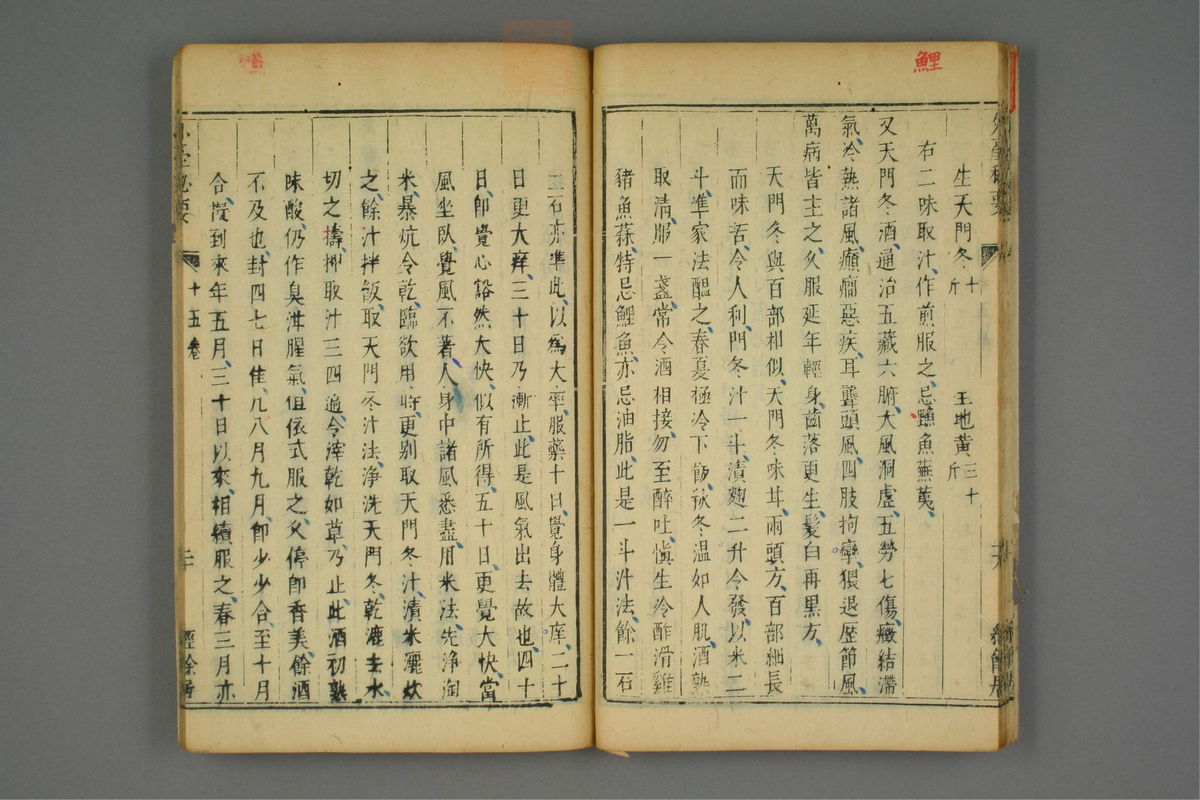 鯉
外臺秘要
生天門冬十斤　生地黃三十斤
右二味取汁、作煎服之、忌鯉魚蕪荑、
又天門冬酒、通治五藏六腑、大風洞虛、五勞七傷、癥結滯
氣、冷熱諸風、癲癇惡疾、耳聾頭風、四肢拘攣、猥退歷節風、
萬病皆主之、久服延年輕身、齒落更生、髮白再黑方、
天門冬與百部相似、天門冬味甘、兩頭方、百部細長
而味苦、令人利、門冬汁一斗、漬麴二升令發、以米二
斗、準家法醞之、春夏極冷下飯、秋冬溫如人肌、酒熟
取清、服一盞、常令酒相接、勿至醉吐、慎生冷酢滑雞
豬魚蒜、特忌鯉魚、亦忌油脂、此是一斗汁法、餘一石
二石亦準此、以為大率、服藥十日、覺身體大痒、二十
日更大痒、三十日乃漸止、此是風氣出去故也、四十
日、即覺心豁然大快、似有所得、五十日、更覺大快、當
風坐臥、覺風不著人、身中諸風悉盡、用米法、先淨淘
米、暴炕令乾、臨欲用時、更別取天門冬汁漬米、灑炊
之、餘汁拌飯、取天門冬汁法、淨洗天門冬、乾漉去水、
切之擣、押取汁三四遍、令滓乾如草、乃止、此酒初熟
味酸、仍作臭泔腥氣、但依式服之、久停即香美、餘酒
不及也、封四七日佳、凡八月九月、即少少合、至十月
合、擬到來年五月、三十日以來、相續服之、春三月亦
外臺秘要
十五卷
二十
經餘居